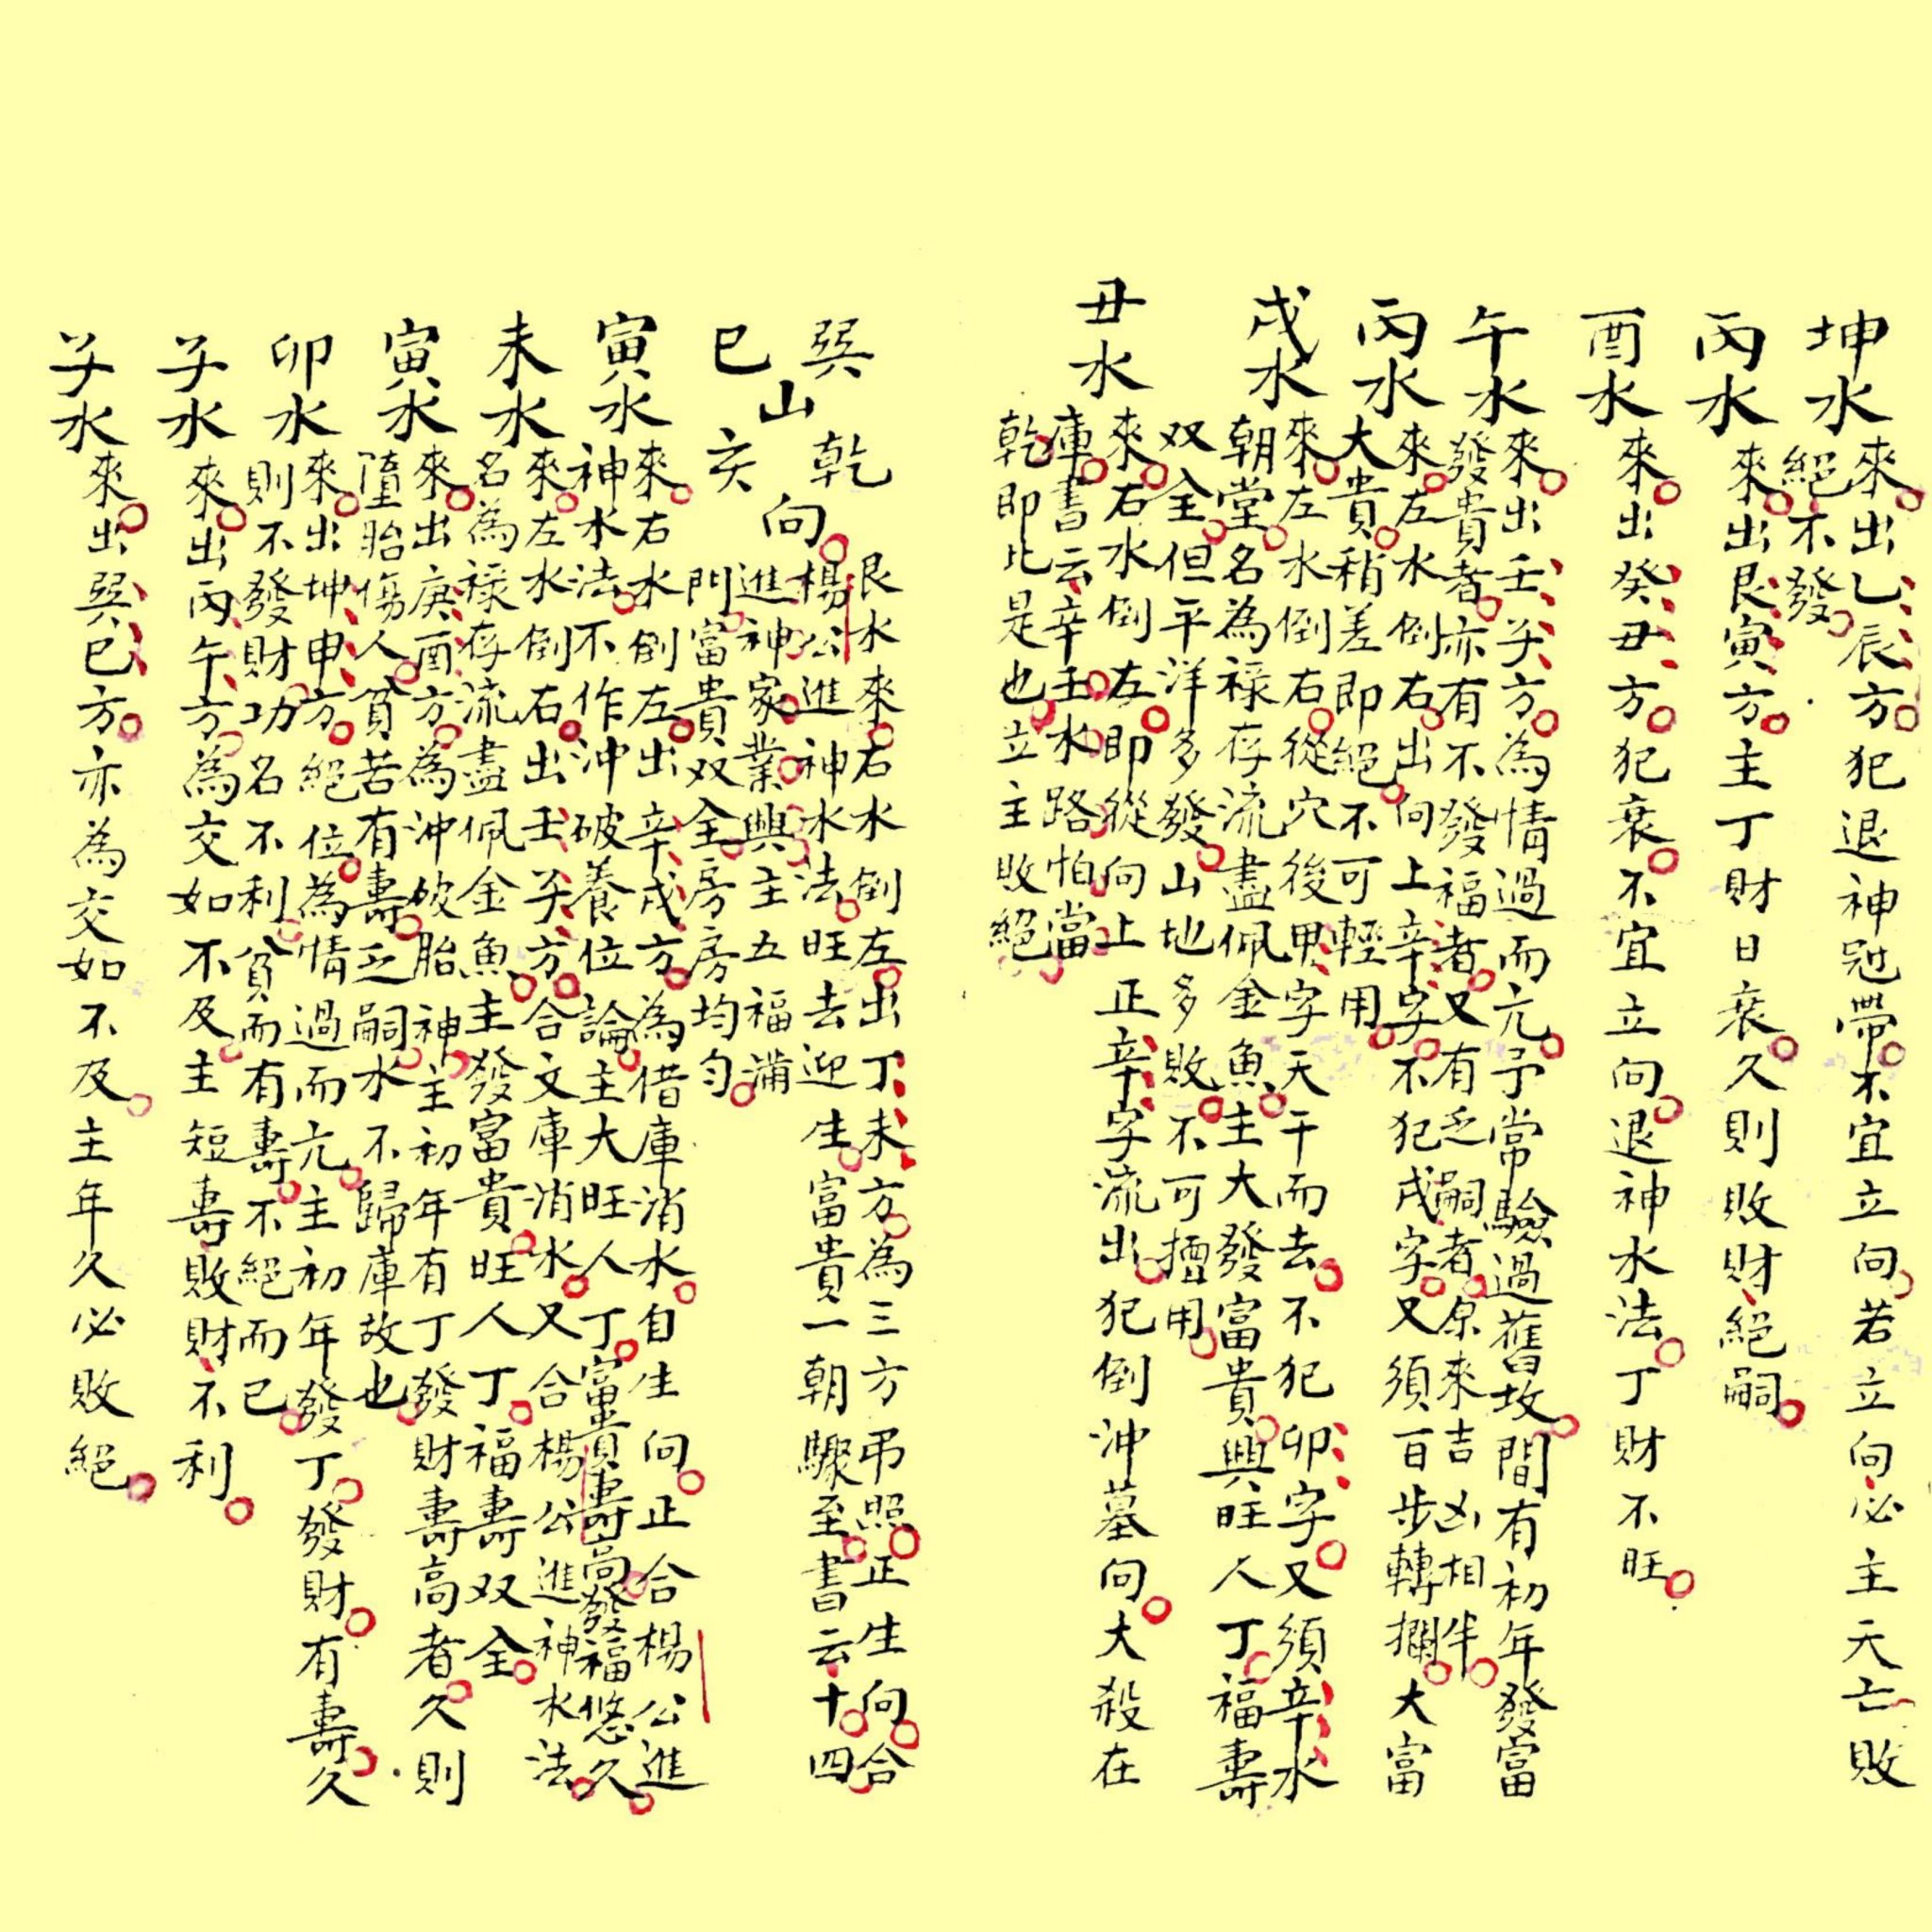 坤水來出乙辰方犯退神冠帶不宜立向若立向必主夭亡敗
絕不發
丙水來出艮寅方主丁財日衰久則敗財絕嗣
酉水來出癸丑方犯衰不宜立向退神水法丁財不旺
午水來出壬子方為情過而亢予常驗過舊坟間有初年發富
發貴者亦有不發福者又有乏嗣者原來吉凶相伴
丙水來左水倒右出向上辛字不犯戌字又須百步轉攔大富
大貴稍差即絕不可輕用
戌水來左水倒右從穴後甲字天干而去不犯卯字又須辛水
朝堂名為祿存流盡佩金魚主大發富貴興旺人丁福壽
双全但平洋多發山地多敗不可擅用
丑水來右水倒左即從向上正辛字流出犯倒沖墓向大殺在
庫書云辛壬水路怕當
乾即比是也立主敗絕
巽巳山乾亥向
艮水來右水倒左出丁未方為三方弔照正生向合
楊公進神水法旺去迎生富貴一朝驟至書云十四
進神家業興主五福滿
門富貴双全房房均勻
寅水來右水倒左出辛戌方為借庫消水自生向正合楊公進
神水法不作沖破養位論主大旺人丁富貴壽高發福悠久
未水來左水倒右出壬子方合文庫消水又合楊公進神水法
名為祿存流盡佩金魚主發富貴旺人丁福壽双全
寅水來出庚酉方為沖破胎神主初年有丁發財壽高者久則
墮胎傷人貧苦有壽乏嗣水不歸庫故也
卯水來出坤申方絕位為情過而亢主初年發丁發財有壽久
則不發財功名不利貧而有壽不絕而已
子水來出丙午方為交如不及主短壽敗財不利
子水來出巽巳方亦為交如不及主年久必敗絕